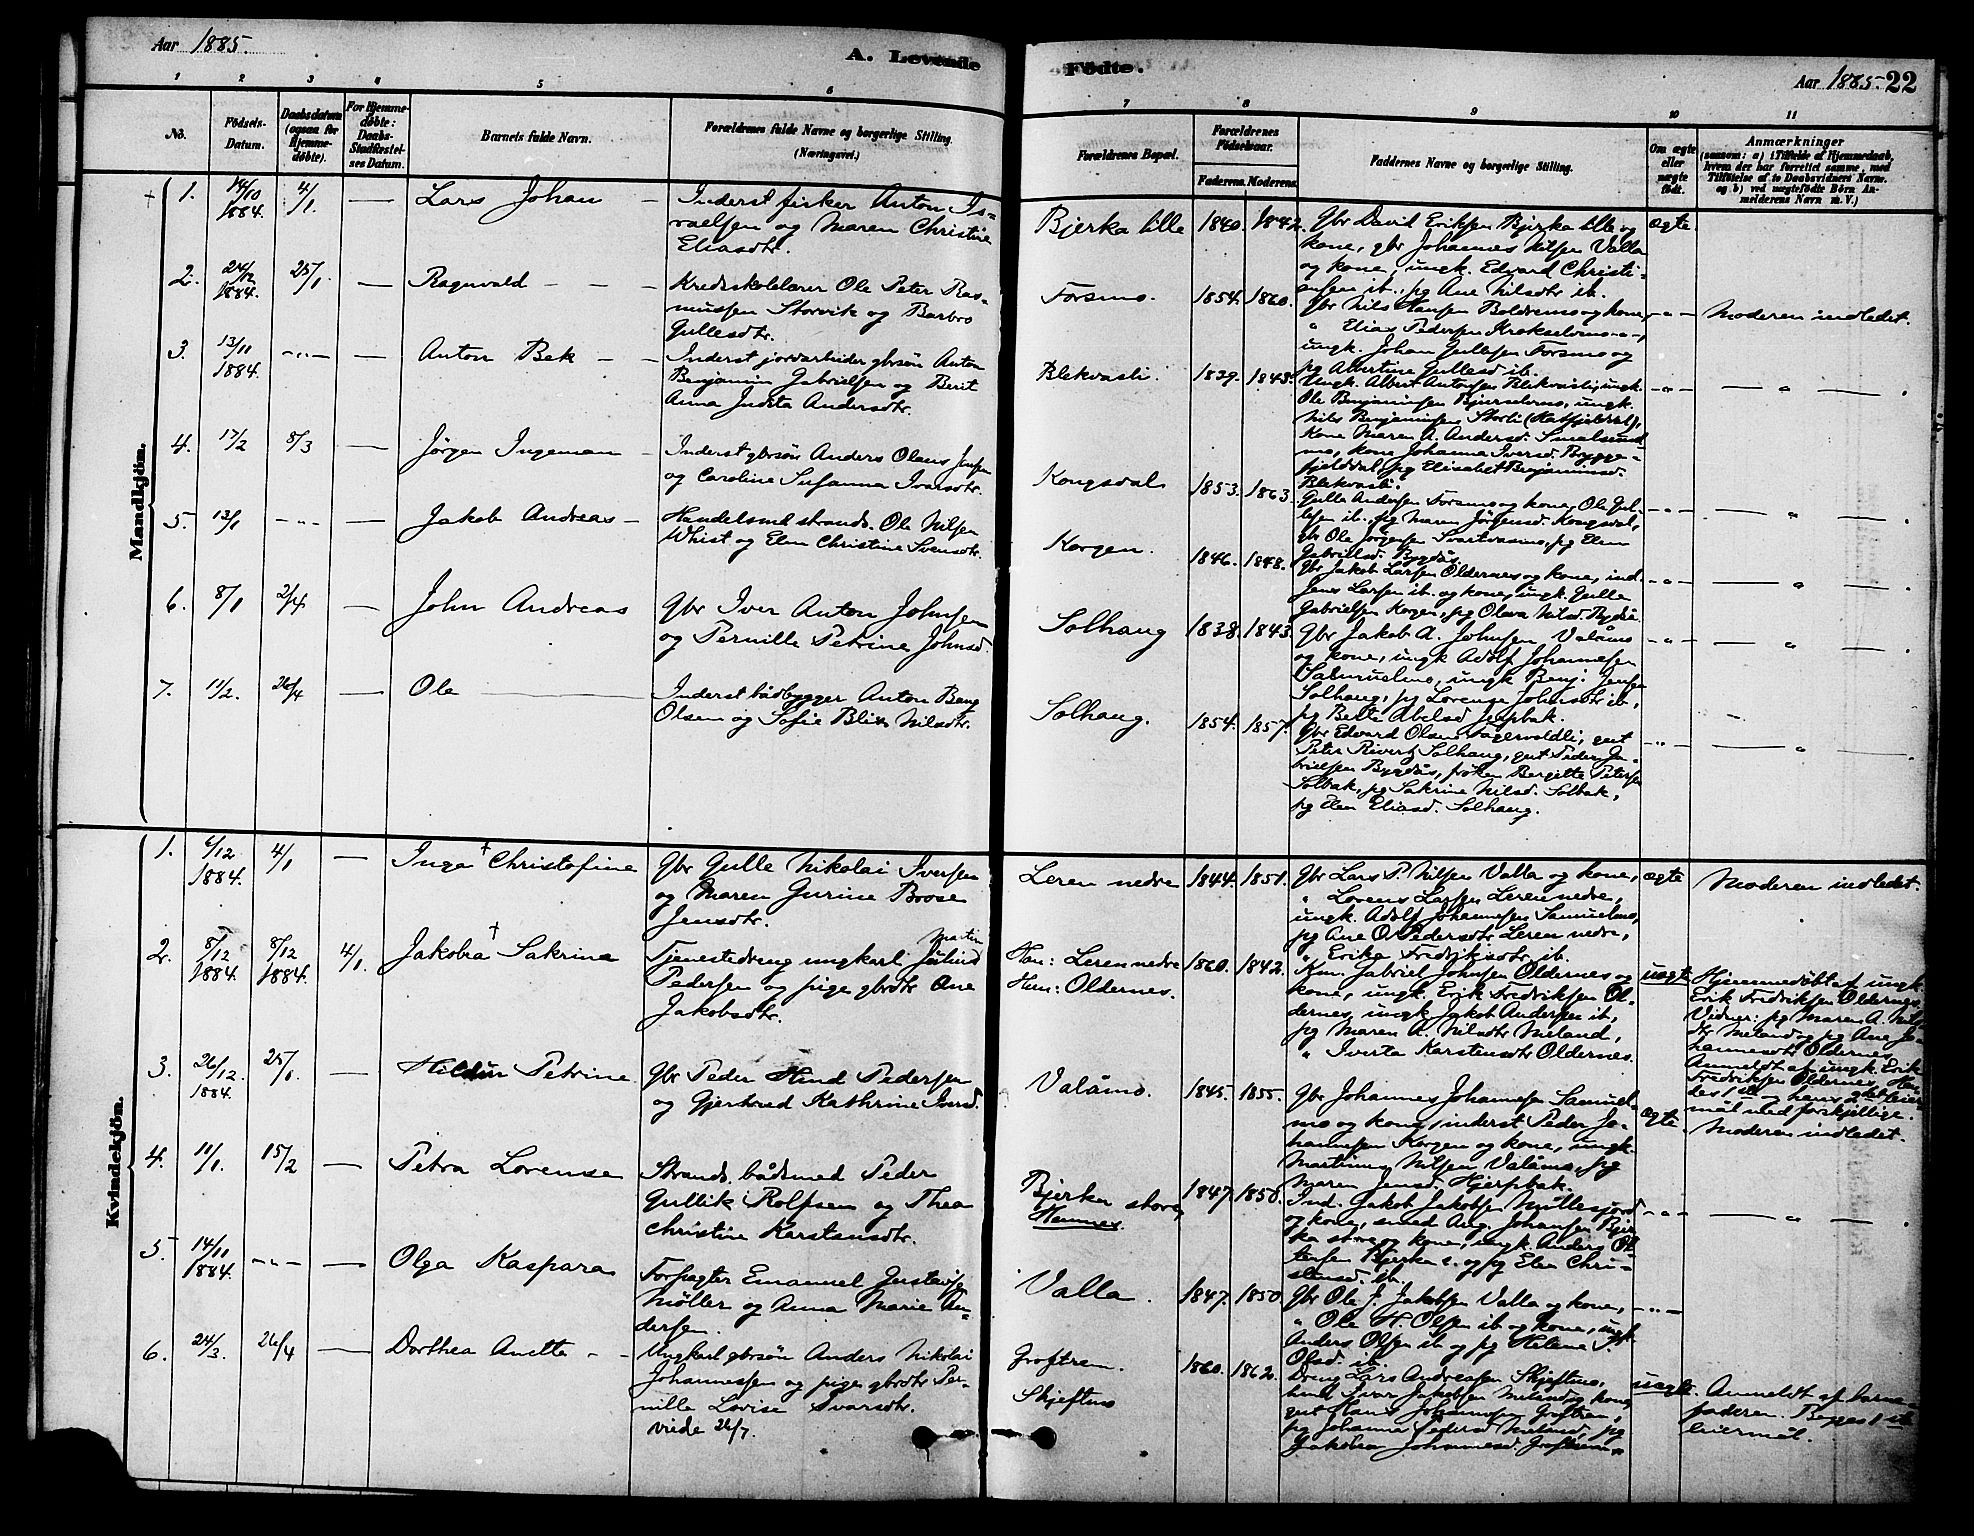 Aar 1885.
A. Levende
Födte.
Aar 1885. 22
1 2 3 4 5 6
7 8 9 10 11
No.
Födsels-
Datum.
Daabsdatum
(ogsaa for
Hjemme-
döbte).
For Hjemme-
döbte:
Daabs-
Stadfæstel-
ses Datum.
Barnets fulde Navn.
Forældrenes fulde Navne og borgerlige Stilling.
(Næringsvei.)
Forældrenes Bopæl.
Forældrenes
Födselsaar.
Faderens. Moderens.
Faddernes Navne og borgerlige Stilling.
Om ægte
eller
uægte
födt.
Anmærkninger
(saasom: a) i Tilfælde af Hjemmedaab,
hvem der har forrettet samme, med
Tilföielse af to Daabsvidners Navne.
og b) ved uægtefödte Börn An-
melderens Navn m. V.)
Mandkjön.
1. 14/10 1884. 4/1. — Lars Johan — Inderst fisker Anton Is-
raelsen og Maren Christine
Eliasdtr.
Bjerka lille 1840. 1842. Gbr David Eriksen Bjerka lille og
kone, gbr Johannes Nilsen Valla
og kone, ungk. Edvard Christi-
ansen ib., pg Ane Nilsdtr ib.
ægte
2. 24/12 1884. 25/1 — Ragnvald — — Kredsskolelærer Ole Peter Ras-
mussen Storvik og Barbro
Gullesdtr.
Forsmo. 1854. 1860. Gbr Nils Hansen Boldermo og kone,
" Elias Pedersen Krokselvmo -"-,
ungk. Johan Gullesen Forsmo og
pg Albertine Gullesd ib.
-"- Moderen indledet.
3. 13/11 1884. -"- — Anton Bek — — Inderst jordarbeider gbrsön Anton
Benjamin Gabrielsen og Berit
Anna Judita Andersdtr.
Blekvasli. 1839. 1843. Ungk. Albert Antonsen Blekvasli, ungk.
Ole Benjaminsen Bjurselvmo, ungk.
Nils Benjaminsen Storli (Hatfjelddal),
kone Maren A. Andersd. Smalsund-
mo, kone Johanna Iversd. Bygge-
fjelddal, pg Elisabet Benjaminsd.
Blekvasli.
-"- — " —.
4. 17/2 8/3 — Jörgen Ingeman — Inderst gbrsön Anders Olaus Jensen
og Caroline Susanna Ivarsdtr.
Kongsdal 1853. 1863. Gulle Andersen Forsmo og kone, Ole Gul-
lesen ib., pg Maren Jörgensd. Kongsdal,
gbr Ole Jörgensen Svartvasmo, pg Elen
Gabrielsd. Bygdås.
-"- — " —.
5. 13/1 -"- — Jakob Andreas — Handelsmd strands. Ole Nilsen
Whist og Elen Christine Svensdtr.
Korgen. 1846. 1848. Gbr Jakob Larsen Oldernes og kone, ind.
Jens Larsen ib. og kone, ungk. Gulle
Gabrielsen Korgen, pg Olava Nilsd. Bygdås.
-"- — " —.
6. 8/1 2/4. — John Andreas Gbr Iver Anton Johnsen
og Pernille Petrine Johnsd.
Solhaug 1838. 1843. Gbr Jakob A. Johnsen Valåmo
og kone, ungk Adolf Johannesen
Samuelmo, ungk Benj. Jensen
Solhaug, pg Lorense Johnsdtr ib,
pg Berit Abelsd Jerpbak.
-"- — " —.
7. 11/2. 26/4 — Ole — Inderst bådbygger Anton Bang
Olsen og Sofie Blix Nilsdtr.
Solhaug. 1854. 1857. Gbr Edvard Olsen Fagervoldli, gut
Peter Rivertz Solhaug, gut Peder Ga-
brielsen Bygdås, fröken Bergitte Petersen
Solbak, pg Sakrine Nilsd. Solbak,
pg Elen Eliasd. Solhaug.
-"- — " —.
Kvindekjön.
1. 6/12 1884. 4/1 — Inga † Christofine Gbr Gulle Nikolai Iversen
og Maren Gurine Boose
Jensdtr.
Leren nedre 1844. 1851. Gbr Lars P. Nilsen Valla og kone,
" Lorens Larsen Leren nedre,
ungk. Adolf Johannesen Samuelmo,
pg Ane O. Pedersdtr Leren nedre,
" Erika Fredriksdtr ib.
ægte Moderen indledet.
2. 8/12 1884. 8/12 1884. 4/1. Jakobia † Sakrina Tjenestedreng ungkarl Martin
Pedersen og pige gbrdtr Ane
Jakobsdtr.
Han: Leren nedre
Hun: Oldernes.
1860. 1842. Km. Gabriel Johnsen Oldernes og
kone, ungk. Erik Fredriksen Ol-
dernes, ungk Jakob Andersen ib,
pg Maren A. Nilsdtr Meland,
" Iverta Karstensdtr Oldernes.
uægte Hjemmedöbt af ungk.
Erik Fredriksen Oldernes.
Vidner: pg Maren A. Nils-
dtr Meland og pg Ane Jo-
hannesdtr Oldernes.
Anmeldt af ungk Erik
Fredriksen Oldernes. Hen-
des 1ste og hans 2det leier-
mål med forskjellige.
3. 26/12. 1884. 25/1. — Hildur Petrine. Gbr Peder Hind Pedersen
og Gjertrud Kathrine Iversd.
Valåmo. 1845. 1855. Gbr Johannes Johannesen Samuel-
mo og kone, inderst Peder Jo-
hannesen Korgen og kone, ungk.
Martinus Nilsen Valåmo, pg
Maren Jensd. Hjerpbak.
ægte. Moderen indledet.
4. 11/1. 15/2 — Petra Lorense Strands. bådsmed Peder
Gullik Rolfsen og Thea
Christine Karstensdtr.
Bjerka store,
Hemnes.
1847. 1850. Ind. Jakob Jakobsen Millesjord
og kone, smed Aug. Johansen Bjer-
ka store og kone, ungk. Anders Ol-
sen Bjerka s. og pg Elen Chri-
stensd. ib.
-"- — " —.
5. 14/11 1884. -"- — Olga Kaspara Forpagter Emanuel Gustavsen
Möller og Anna Marie An-
dersen.
Valla. 1847. 1850 Gbr Ole J. Jakobsen Valla og kone,
" Ole H. Olsen ib og kone, ungk
Anders Olsen ib og pg Helene J.
Olsd. ib.
-"-
6. 24/3. 26/4 — Dorthea Anetta - - Ungkarl gbrsön Anders Nikolai
Johannessen og pige gbrdtr Per-
nille Lovise Ivarsdtr.
viede 26/7.
Groftrem.
Skjeftmo
1860. 1862. Dreng Lars Andreassen Skjeftmo,
Ivar Jakobsen Meland og kone,
gut Hans Johannesen Groftrem,
pg Johanna Pedersd Meland, pg
Jakobia Johannesd. Groftrem.
uægte. Anmeldt af barne-
faderen. Begges 1ste
leiermål.